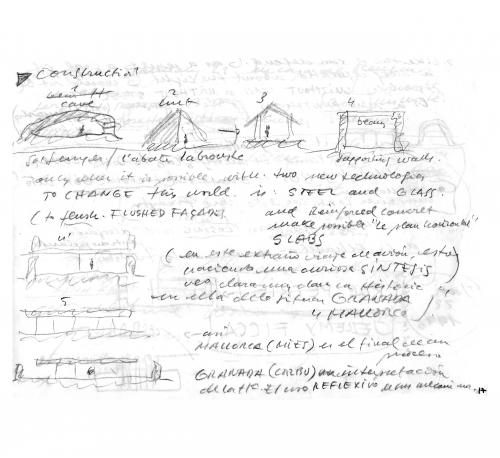 Construction
1
cave
2
hut
3
4
beam
Semper / l'abate
supporting walls.
only when it is possible with two new technologies
TO CHANGE this world is: STEEL and GLASS.
(to flush. FLUSHED FAÇADE
and Reinforced concret
make possible "le plan horizontal"
SLABS
4'
(en este extraño viaje de avión, está
naciendo una curiosa SINTESIS
veo clara muy clara la Historia
en ella debo situar GRANADA
y MALLORCA
5
así
MALLORCA (MIES) es el final de un
proceso
GRANADA (CORBU) una interpretación
de la H. El uso REFLEXIVO